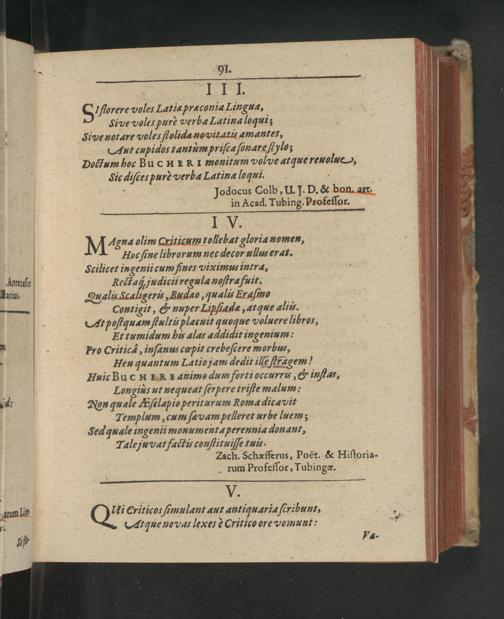 91.
III.
SI florere voles Latiæ præconia Linguæ,
Sive voles purè verba Latina loqui;
Sive notare voles stolidæ novitatis amantes,
Aut cupidos tantùm prisca sonare stylo;
Doctum hoc BUCHERI monitum volve atque revolve,
Sic disces purè verba Latina loqui.
Jodocus Colb, U. J. D. & bon. art.
in Acad. Tubing. Professor.
IV.
MAgna olim Criticum tollebat gloria nomen,
Hoc sine librorum nec decor ullus erat.
Scilicet ingenii cum fines viximus intra,
Rectaq; judicii regula nostra fuit.
Qualis Scaligeris, Budæo, qualis Erasmo
Contigit, & nuper Lipsiadæ, atque aliis.
At postquam stultis placuit quoque voluere libros,
Et tumidum his alas addidit ingenium:
Pro Criticâ, insanus cœpit crebescere morbus,
Heu quantum Latio jam dedit ille stragem!
Huic BUCHERE animo dum forti occurris, & instas,
Longiùs ut nequeat serpere triste malum:
Non quale Æsclapio periturum Roma dicavit
Templum, cum sævam pelleret urbe luem;
Sed quale ingenii monumenta perennia donant,
Tale juvat factis constituisse tuis.
Zach. Schæfferus, Poët. & Historia-
rum Professor, Tubingæ.
V.
QUi Criticos simulant aut antiquaria scribunt,
Atque novas lexes è Critico ore vomunt:
Va-